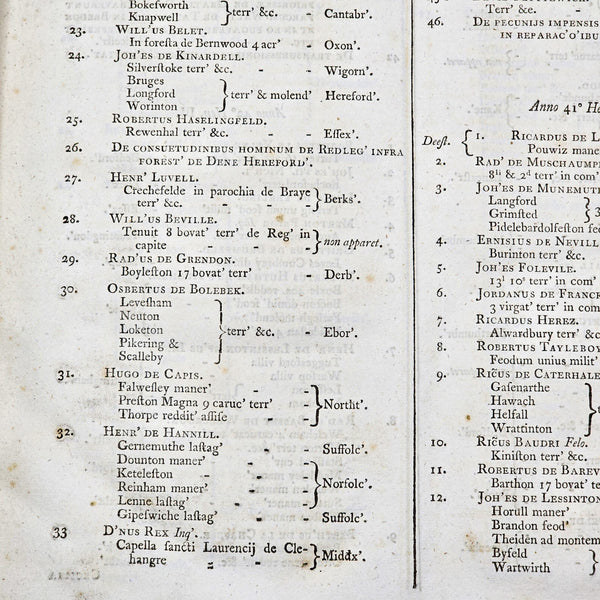 Bokesworth
Knapwell } terr' &c. - Cantabr'.
23. WILL'US BELET.
In foresta de Bernwood 4 acr' - Oxon'.
24. JOH'ES DE KINARDELL.
Silverstoke terr' &c. - - Wigorn'.
Bruges
Longford } terr' & molend' Hereford'.
Worinton
25. ROBERTUS HASELINGFELD.
Rewenhal terr' &c. - - Essex'.
26. DE CONSUETUDINIBUS HOMINUM DE REDLEG' INFRA
FOREST' DE DENE HEREFORD'.
27. HENR' LUVELL.
Crechesfelde in parochia de Braye
terr' &c. - - - } Berks'.
28. WILL'US BEVILLE.
Tenuit 8 bovat' terr' de Reg' in
capite - - - } non apparet.
29. RAD'US DE GRENDON.
Boyleston 17 bovat' terr' - Derb'.
30. OSBERTUS DE BOLEBEK.
Levesham
Neuton
Loketon } terr' &c. - Ebor'.
Pikering &
Scalleby
31. HUGO DE CAPIS.
Falwesley maner' - -
Preston Magna 9 caruc' terr' - } Northt'.
Thorpe reddit' assise - -
32. HENR' DE HANNILL.
Gernemuthe lastag' - - Suffolc'.
Dounton maner' - -
Keteleston - - -
Reinham maner' - - } Norfolc'.
Lenne lastag' - -
Gipeswiche lastag' - - Suffolc'.
33 D'NUS REX Inq'.
Capella sancti Laurencij de Cle-
hangre - - - } Middx'.
Terr' &c.
46. DE PECUNIJS IMPENSIS
IN REPARAC'O'IBU
Anno 41° He
Deest. { 1. RICARDUS DE L
Pouwiz mane
2. RAD' DE MUSCHAUMP
8li & 2d terr' in com'
3. JOH'ES DE MUNEMUT
Langford
Grimsted } 3
Pidelebardolfeston feo
4. ERNISIUS DE NEVILL
Burinton terr' &c.
5. JOH'ES FOLEVILE.
13s 10s terr' in com'
6. JORDANUS DE FRANCK
3 virgat' terr' in com
7. RICARDUS HEREZ.
Alwardbury terr' &c
8. ROBERTUS TAYLEBOY
Feodum unius milit'
9. RIC̃US DE CATERHALE
Gasenarthe
Hawach
Helfall
Wrattinton
10. RIC̃US BAUDRI Felo.
Kiniston terr' &c.
11. ROBERTUS DE BAREV
Barthon 17 bovat' te
12. JOH'ES DE LESSINTON
Horull maner'
Brandon feod'
Theiden ad montem
Byfeld
Wartwirth